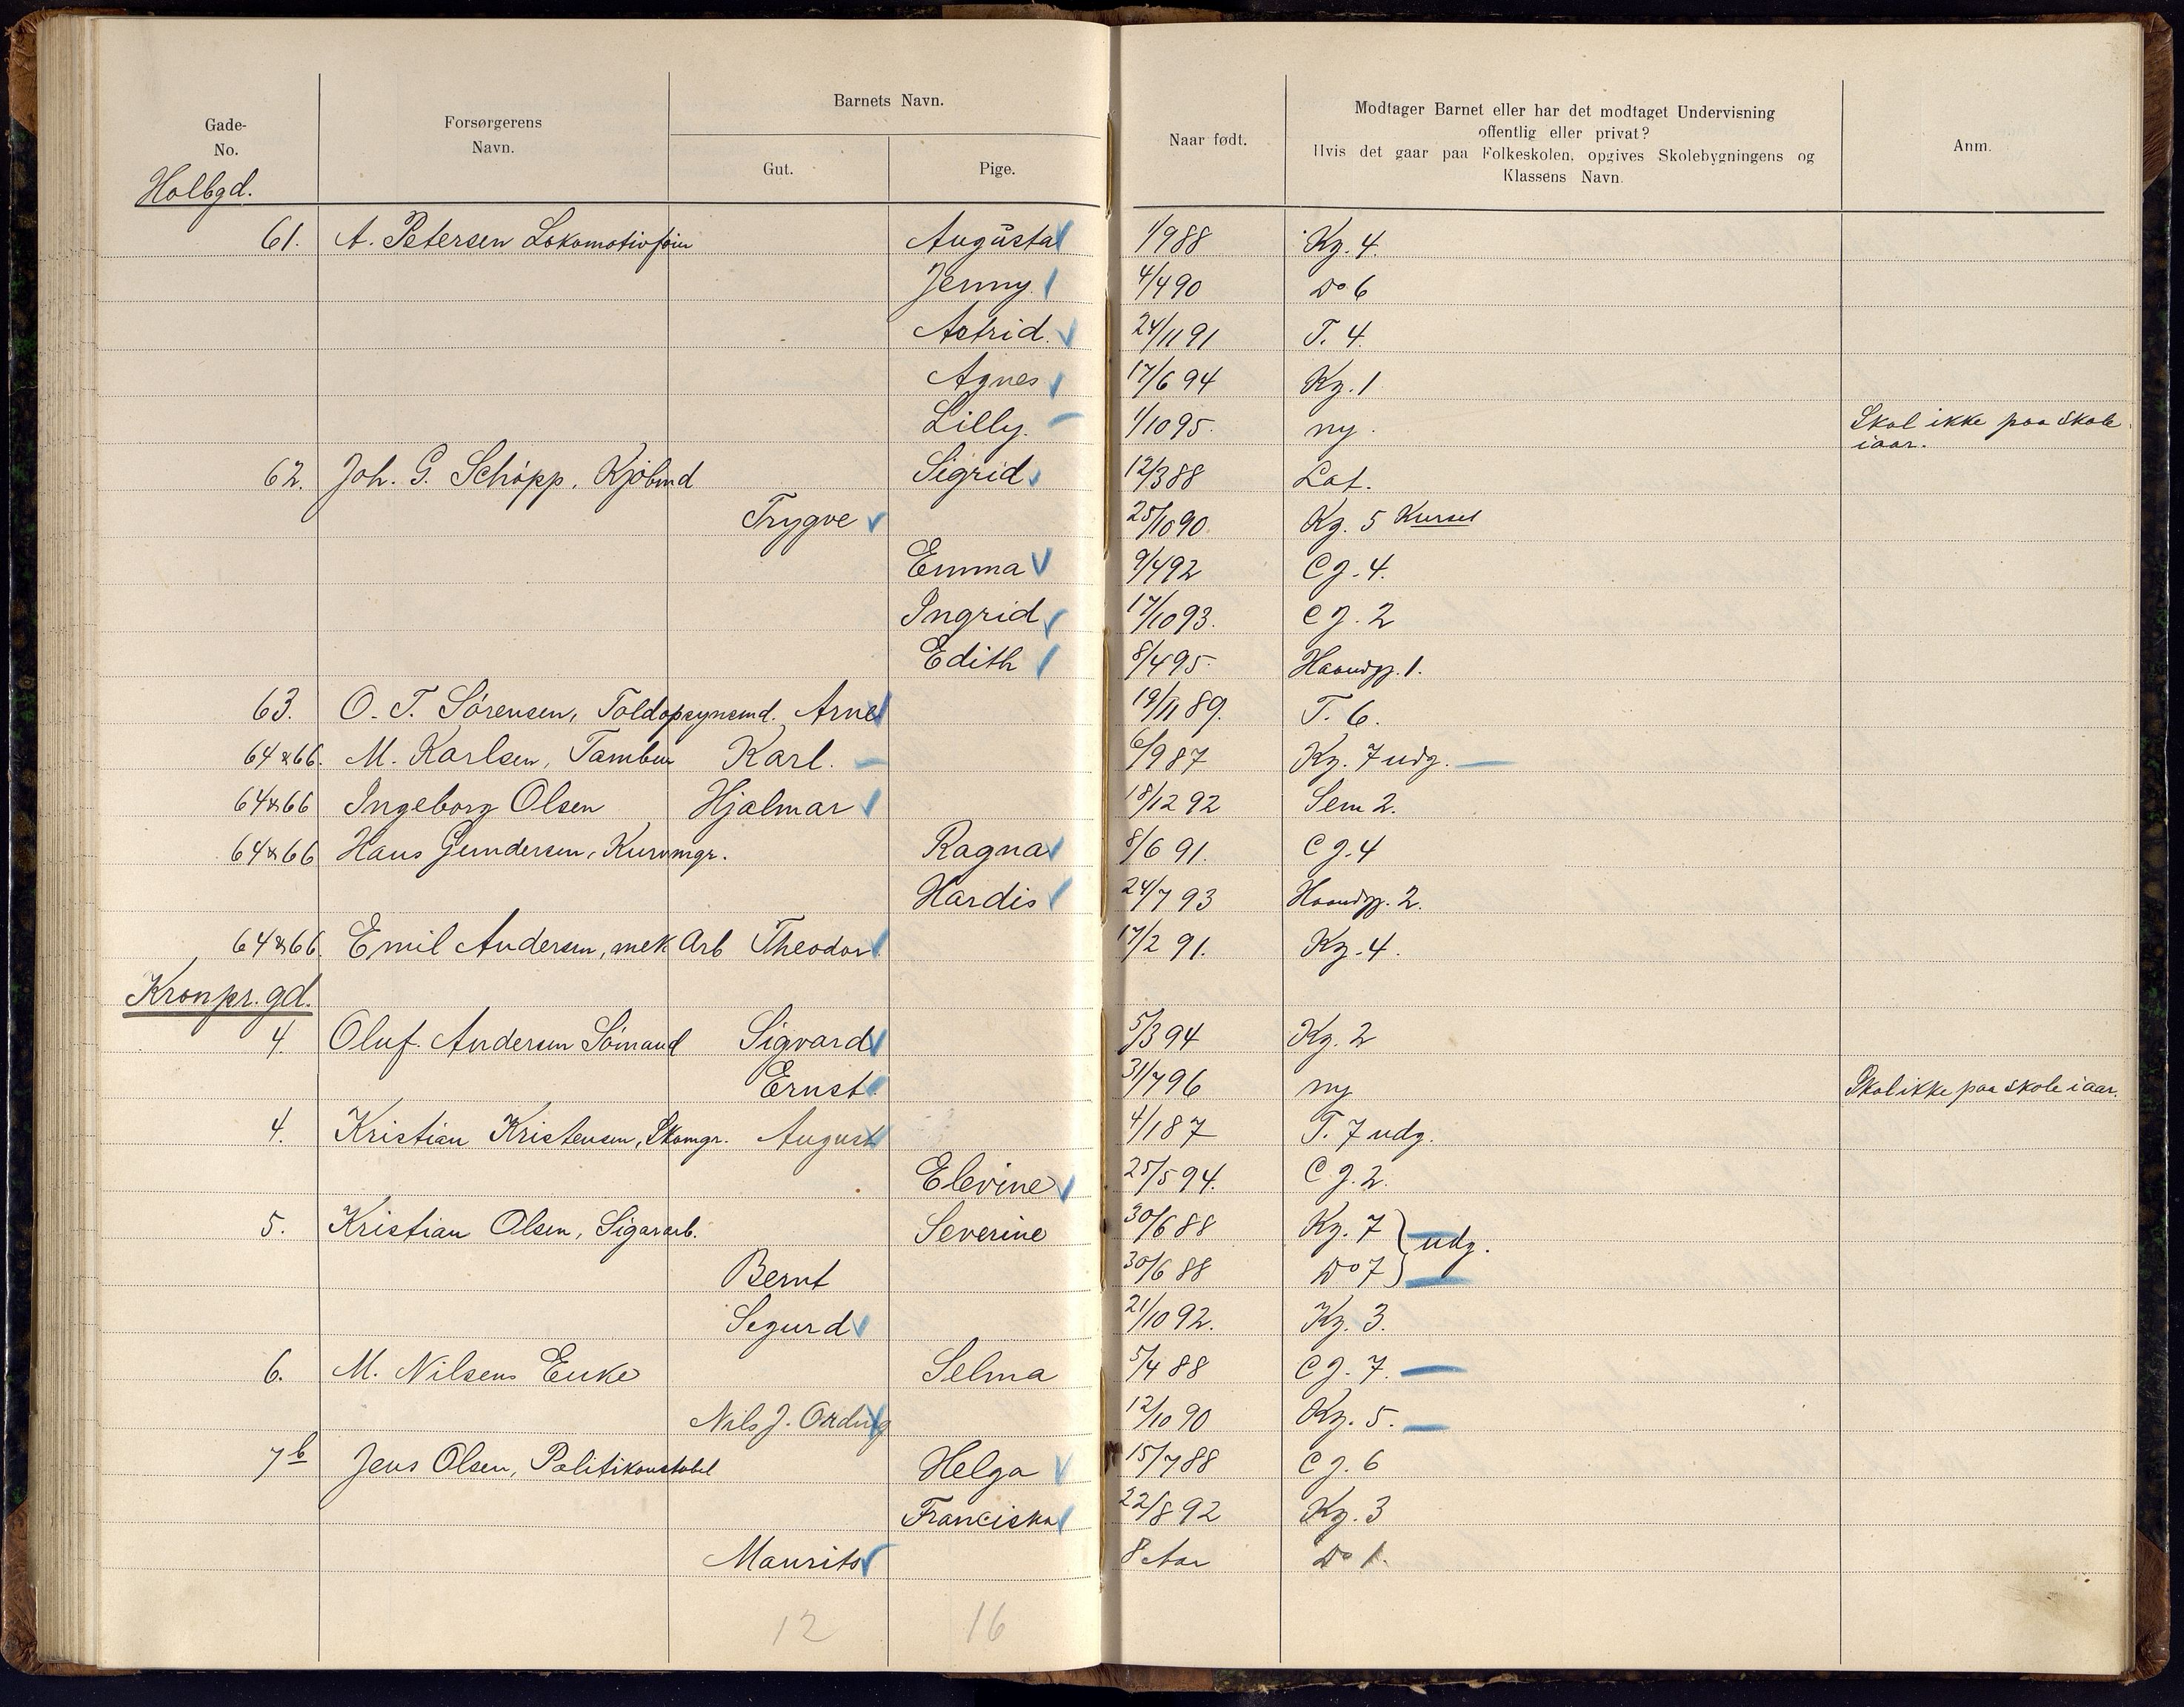 Gade-
No.
Forsørgerens
Navn.
Barnets Navn.
Gut.
Pige.
Naar født.
Modtager Barnet eller har det modtaget Undervisning
offentlig eller privat?
Hvis det gaar paa Folkeskolen, opgives Skolebygningens og
Klassens Navn.
Anm.
Holbgd.
61. A. Petersen Lokomotivfører Augusta 1/9 88 Kg. 4.
Jenny. 4/4 90 Do 6
Astrid. 24/11 91 T. 4.
Agnes 17/6 94 Kg. 1
Lilly. 1/10 95. ny. Skal ikke paa Skole
iaar.
62. Joh. G. Schöpp, Kjøbmd Sigrid 12/3 88 Lat.
Trygve 25/10 90. Kg. 5 Kursel
Emma 9/4 92 C J. 4.
Ingrid 17/10 93. C J. 2
Edith 8/4 95. Haandgj. 1.
63. O. T. Sørensen, Toldopsynsmd. Arne 19/11 89. T. 6.
64 & 66. M. Karlsen, Tambur Karl. 6/9 87 Kg. 7 udg.
64 & 66 Ingeborg Olsen Hjalmar 18/12 92 Sem 2.
64 & 66 Hans Gundersen, Kurvmgr. Ragna 8/6 91. C J. 4
Hardis 24/7 93 Haandgj. 2.
64 & 66. Emil Andersen, mek Arb Theodor 17/2 91. Kg. 4.
Kronpr. gd.
4. Oluf Andersen Sömand Sigvard 5/3 94 Kg. 2
Ernst. 31/7 96 ny Skal ikke paa skole iaar.
4. Kristian Kristensen, Skomgr. August 4/1 87 T. 7 udg.
Elevine 25/5 94. C J. 2.
5. Kristian Olsen, Sigararb. Severine 30/6 88 Kg. 7 udg.
Bernt 30/6 88 Do 7
Segurd 21/10 92. Kg. 3.
6. M. Nilsens Enke Selma 5/4 88 C J. 7.
Nils J. Ording 12/10 90 Kg. 5.
7b Jens Olsen, Politikonstabel Helga 15/7 88 C J. 6
Franciska 22/8 92 Kg. 3
Maurits 8 Aar Do 1.
12 16